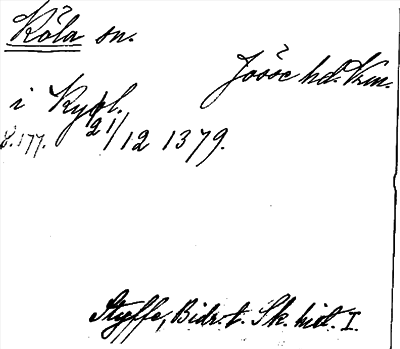 Kåla sn.
Jösse hd. Vrm.
i Kyrkpl.
s. 177. 21/12 1379.
Styffe, Bidr. t. Sk. hist. I.